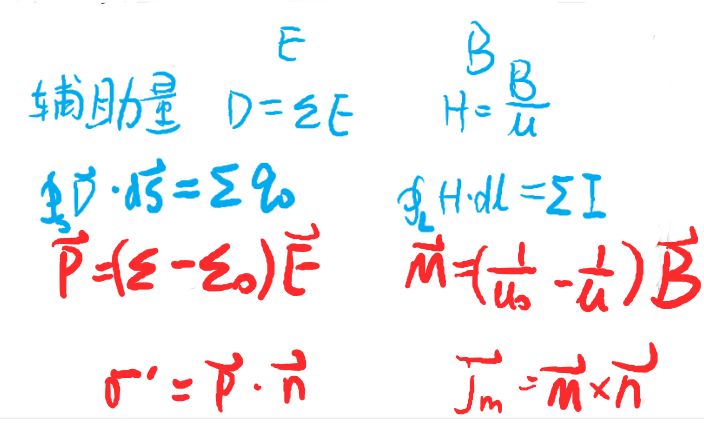 E B
辅助量 D=εE H=B/μ
∮ₛD⃗·dS⃗=Σq₀ ∮_L H·dl=ΣI
P⃗=(ε-ε₀)E⃗ M⃗=(1/μ₀-1/μ)B⃗
σ'=P⃗·n⃗ J⃗m=M⃗×n⃗